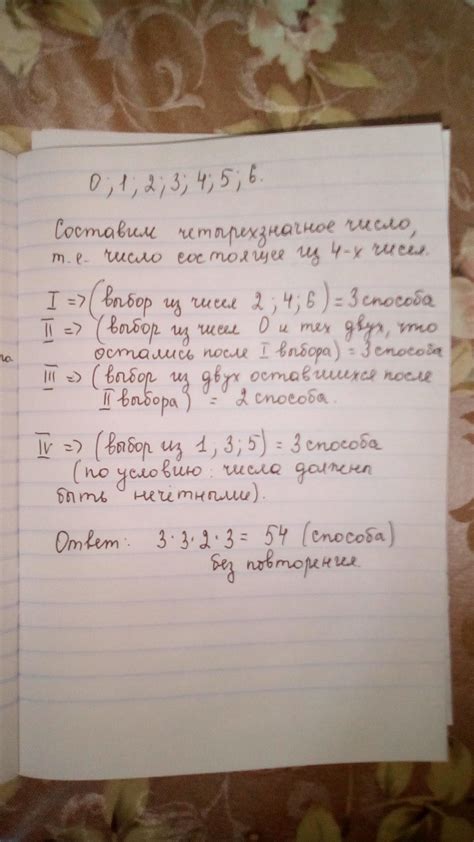 0; 1; 2; 3; 4; 5; 6.
Составим четырехзначное число,
т.е. число состоящее из 4-х чисел.
I => (выбор из чисел 2; 4; 6) = 3 способа
II => (выбор из чисел 0 и тех двух, что
остались после I выбора) = 3 способа
III => (выбор из двух оставшихся после
II выбора) = 2 способа.
IV => (выбор из 1, 3; 5) = 3 способа
(по условию: числа должны
быть нечётными).
Ответ: 3·3·2·3 = 54 (способа)
без повторения.